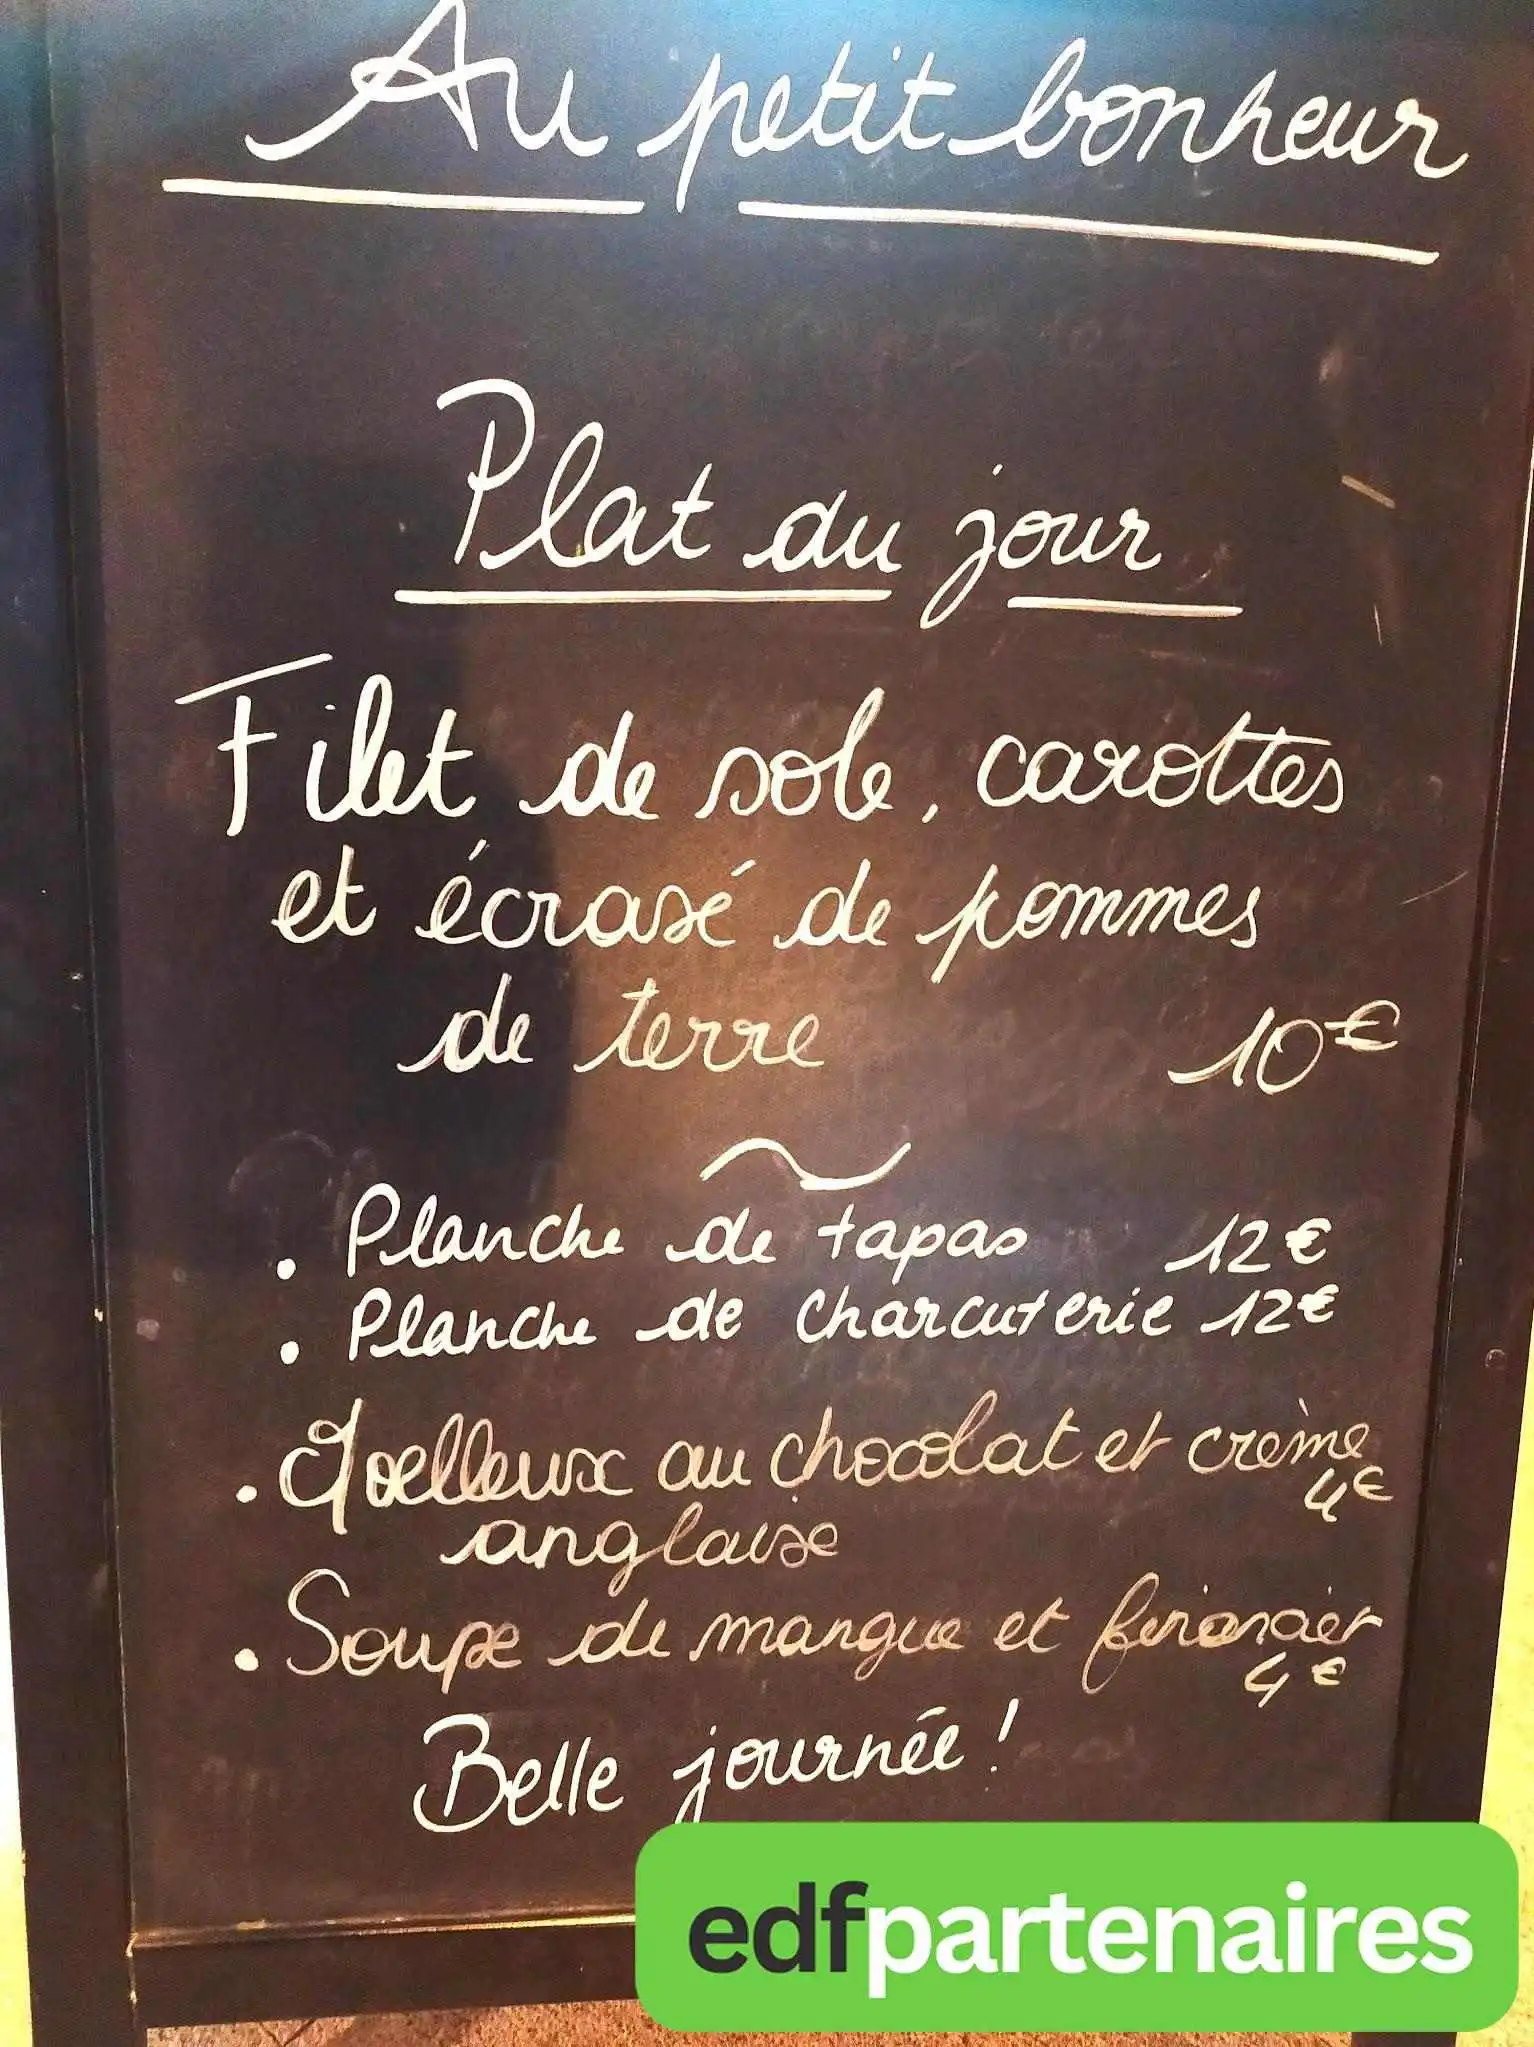 Au petit bonheur
Plat du jour
Filet de sole, carottes
et écrasé de pommes
de terre 10€
. Planche de tapas 12€
. Planche de charcuterie 12€
. Moelleux au chocolat et crème
4€
anglaise
. Soupe de mangue et
4€
Belle journée !
edfpartenaires